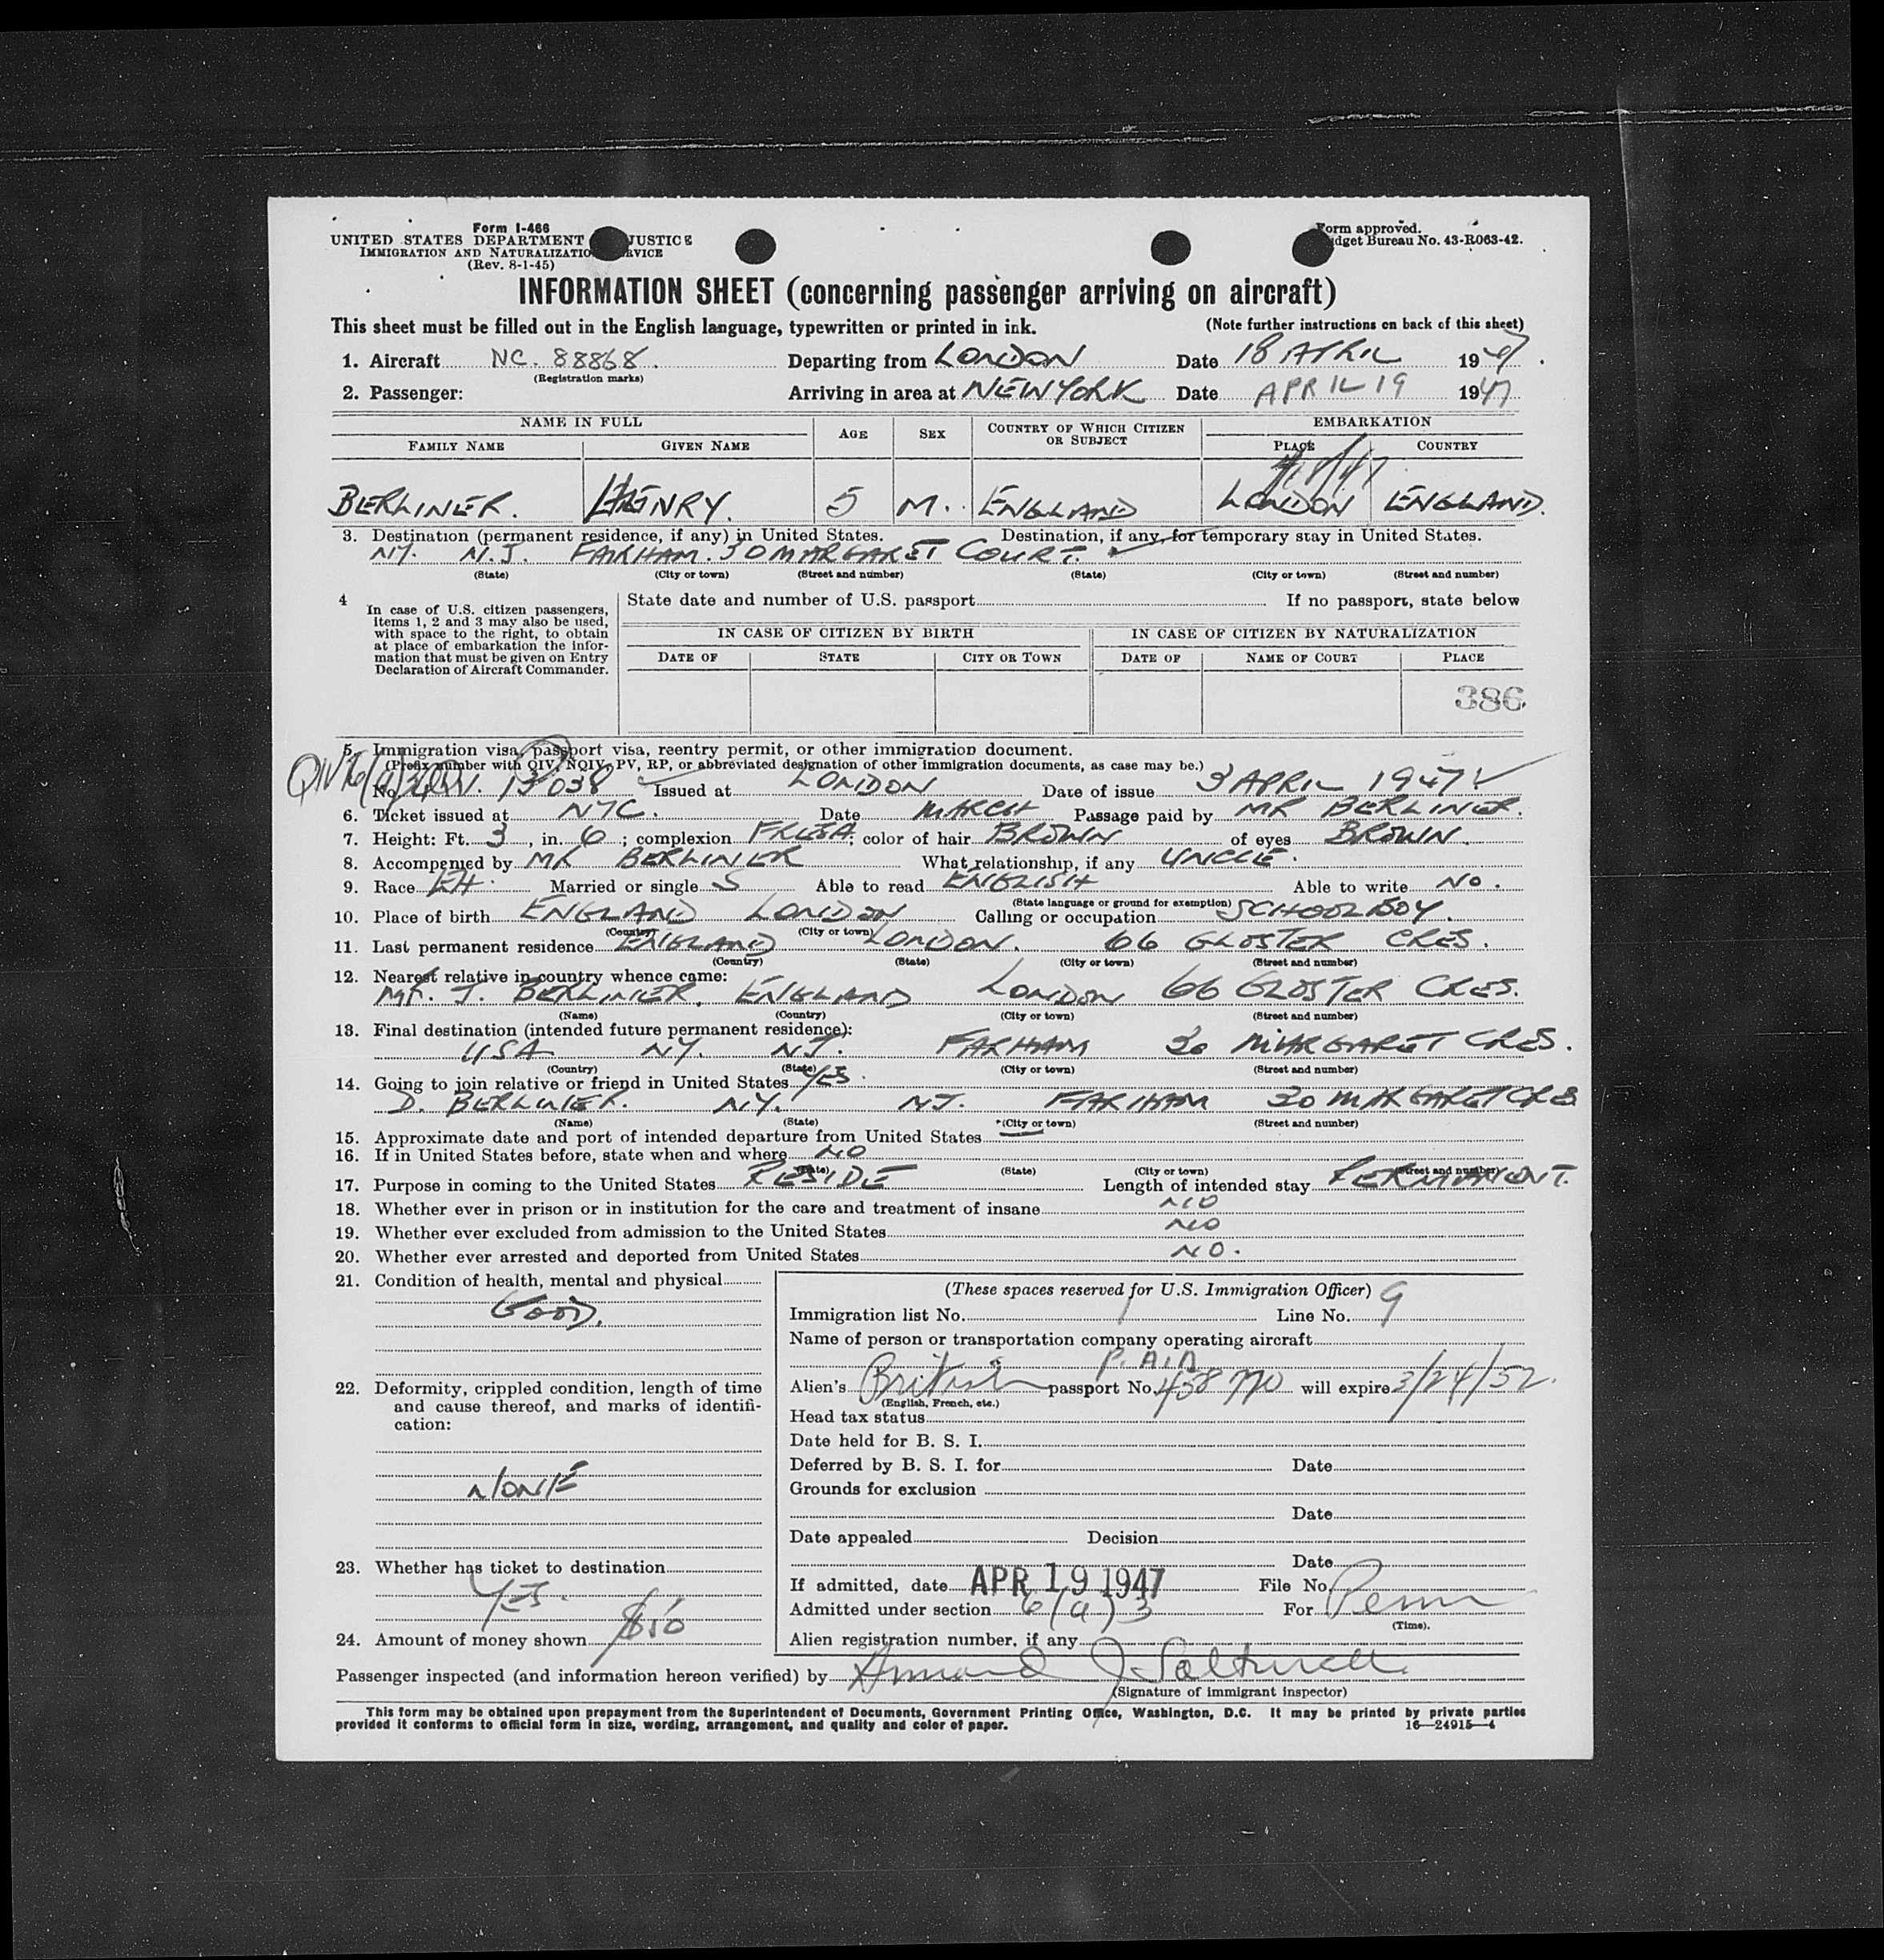 Form I-466
UNITED STATES DEPARTMENT JUSTICE
IMMIGRATION AND NATURALIZATIO RVICE
(Rev. 8-1-45)
Form approved.
dget Bureau No. 43-R063-42.
INFORMATION SHEET (concerning passenger arriving on aircraft)
This sheet must be filled out in the English language, typewritten or printed in ink. (Note further instructions on back of this sheet)
1. Aircraft NC. 88868. Departing from LONDON Date 18 APRIL 1947.
(Registration marks)
2. Passenger: Arriving in area at NEW YORK Date APRIL 19 1947
NAME IN FULL AGE SEX COUNTRY OF WHICH CITIZEN OR SUBJECT EMBARKATION
FAMILY NAME GIVEN NAME PLACE COUNTRY
BERLINER. HENRY. 5 M. ENGLAND LONDON ENGLAND.
3. Destination (permanent residence, if any) in United States. Destination, if any, for temporary stay in United States.
NY. N.J. FARHAM. 30 MARGARET COURT.
(State) (City or town) (Street and number) (State) (City or town) (Street and number)
4 In case of U.S. citizen passengers, items 1, 2 and 3 may also be used, with space to the right, to obtain at place of embarkation the information that must be given on Entry Declaration of Aircraft Commander.
State date and number of U.S. passport If no passport, state below
IN CASE OF CITIZEN BY BIRTH IN CASE OF CITIZEN BY NATURALIZATION
DATE OF STATE CITY OR TOWN DATE OF NAME OF COURT PLACE
386
5. Immigration visa, passport visa, reentry permit, or other immigration document.
(Prefix number with QIV, NQIV, PV, RP, or abbreviated designation of other immigration documents, as case may be.)
No. 13038 Issued at LONDON Date of issue 3 APRIL 1947
6. Ticket issued at NYC. Date MARCH Passage paid by MR BERLINER.
7. Height: Ft. 3, in. 6; complexion FRESH; color of hair BROWN of eyes BROWN.
8. Accompanied by MR BERLINER What relationship, if any UNCLE.
9. Race EH. Married or single S Able to read ENGLISH Able to write NO.
(State language or ground for exemption)
10. Place of birth ENGLAND LONDON Calling or occupation SCHOOLBOY.
(Country) (City or town)
11. Last permanent residence ENGLAND LONDON. 66 GLOSTER CRES.
(Country) (State) (City or town) (Street and number)
12. Nearest relative in country whence came:
MR. J. BERLINER. ENGLAND LONDON 66 GLOSTER CRES.
(Name) (Country) (City or town) (Street and number)
13. Final destination (intended future permanent residence):
USA NY. NJ. FARHAM 30 MARGARET CRES.
(Country) (State) (City or town) (Street and number)
14. Going to join relative or friend in United States YES.
D. BERLINER. NY. NJ. FARHAM 30 MARGARET CRES
(Name) (State) (City or town) (Street and number)
15. Approximate date and port of intended departure from United States
16. If in United States before, state when and where NO
(Date) (State) (City or town) (Street and number)
17. Purpose in coming to the United States RESIDE Length of intended stay PERMANENT.
18. Whether ever in prison or in institution for the care and treatment of insane NO
19. Whether ever excluded from admission to the United States NO
20. Whether ever arrested and deported from United States NO.
21. Condition of health, mental and physical
GOOD.
22. Deformity, crippled condition, length of time and cause thereof, and marks of identification:
NONE
23. Whether has ticket to destination
YES.
24. Amount of money shown $50
(These spaces reserved for U.S. Immigration Officer)
Immigration list No. 1 Line No. 9
Name of person or transportation company operating aircraft
P.A.A
Alien's British passport No. 458770 will expire 3/24/52.
(English, French, etc.)
Head tax status
Date held for B. S. I.
Deferred by B. S. I. for Date
Grounds for exclusion
Date
Date appealed Decision
Date
If admitted, date APR 19 1947 File No.
Admitted under section 6(a)3 For Perm
(Time).
Alien registration number, if any
Passenger inspected (and information hereon verified) by
(Signature of immigrant inspector)
This form may be obtained upon prepayment from the Superintendent of Documents, Government Printing Office, Washington, D.C. It may be printed by private parties
provided it conforms to official form in size, wording, arrangement, and quality and color of paper. 16—24915-4